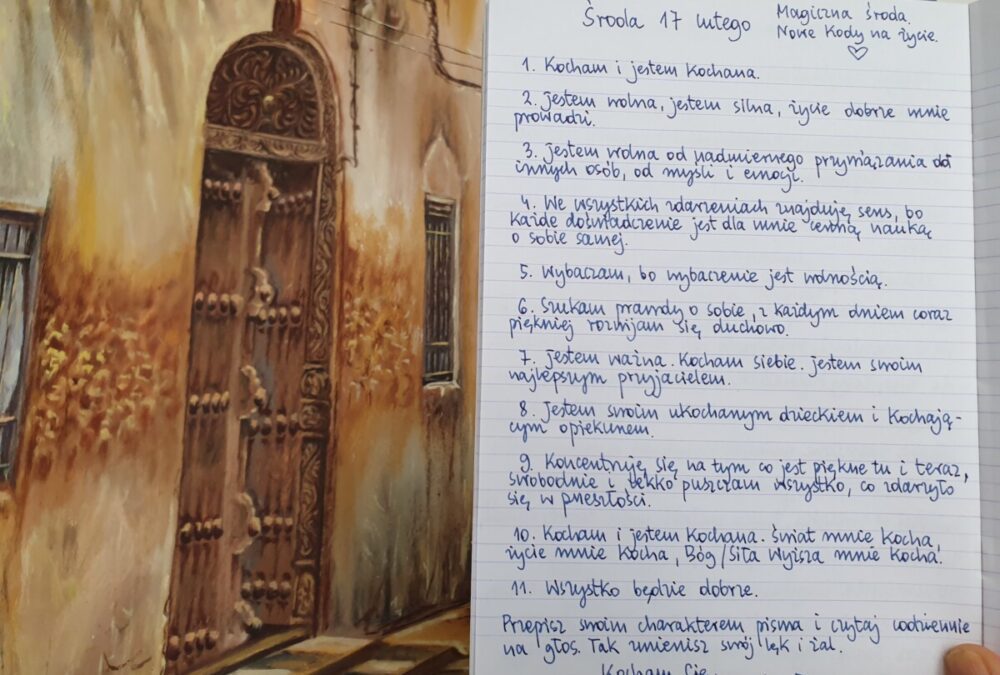 Środa 17 lutego
Magiczna środa.
Nowe Kody na życie.
1. Kocham i jestem Kochana.
2. Jestem wolna, jestem silna, życie dobrze mnie
prowadzi.
3. Jestem wolna od nadmiernego przywiązania do
innych osób, od myśli i emocji.
4. We wszystkich zdarzeniach znajduję sens, bo
każde doświadczenie jest dla mnie cenną nauką
o sobie samej.
5. Wybaczam, bo wybaczenie jest wolnością.
6. Szukam prawdy o sobie, z każdym dniem coraz
piękniej rozwijam się duchowo.
7. Jestem ważna. Kocham siebie. Jestem swoim
najlepszym przyjacielem.
8. Jestem swoim ukochanym dzieckiem i Kochają-
cym opiekunem.
9. Koncentruję się na tym co jest piękne tu i teraz,
swobodnie i lekko puszczam wszystko, co zdarzyło
się w przeszłości.
10. Kocham i jestem Kochana. Świat mnie Kocha,
życie mnie Kocha, Bóg/Siła Wyższa mnie Kocha.
11. Wszystko będzie dobrze.
Przepisz swoim charakterem pisma i czytaj codziennie
na głos. Tak zmienisz swój lęk i żal.
Kocham Cię